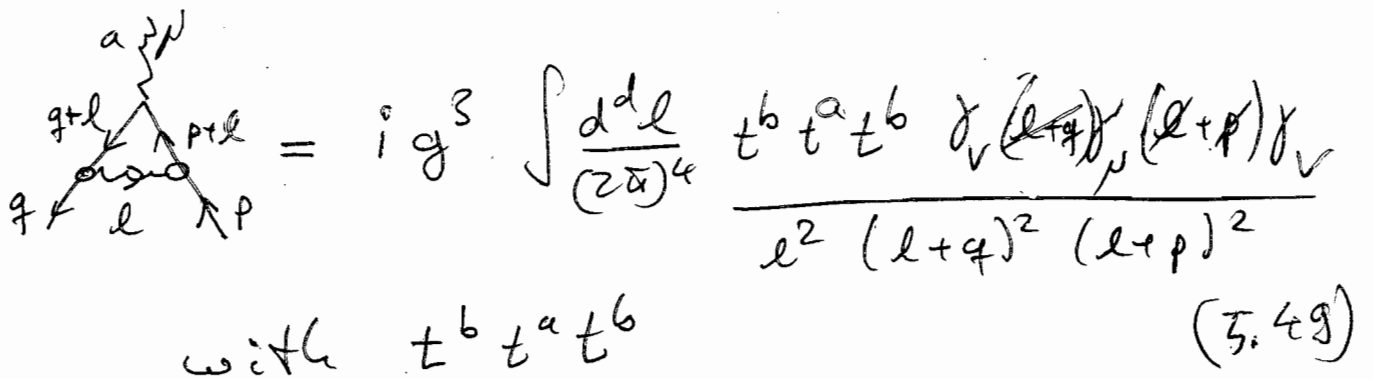 a μ
q+l p+l = i g³ ∫ d^d l / (2π)⁴ t^b t^a t^b γ_ν (l̸+q̸) γ_μ (l̸+p̸) γ_ν / l² (l+q)² (l+p)²
q l p
with t^b t^a t^b (5.49)